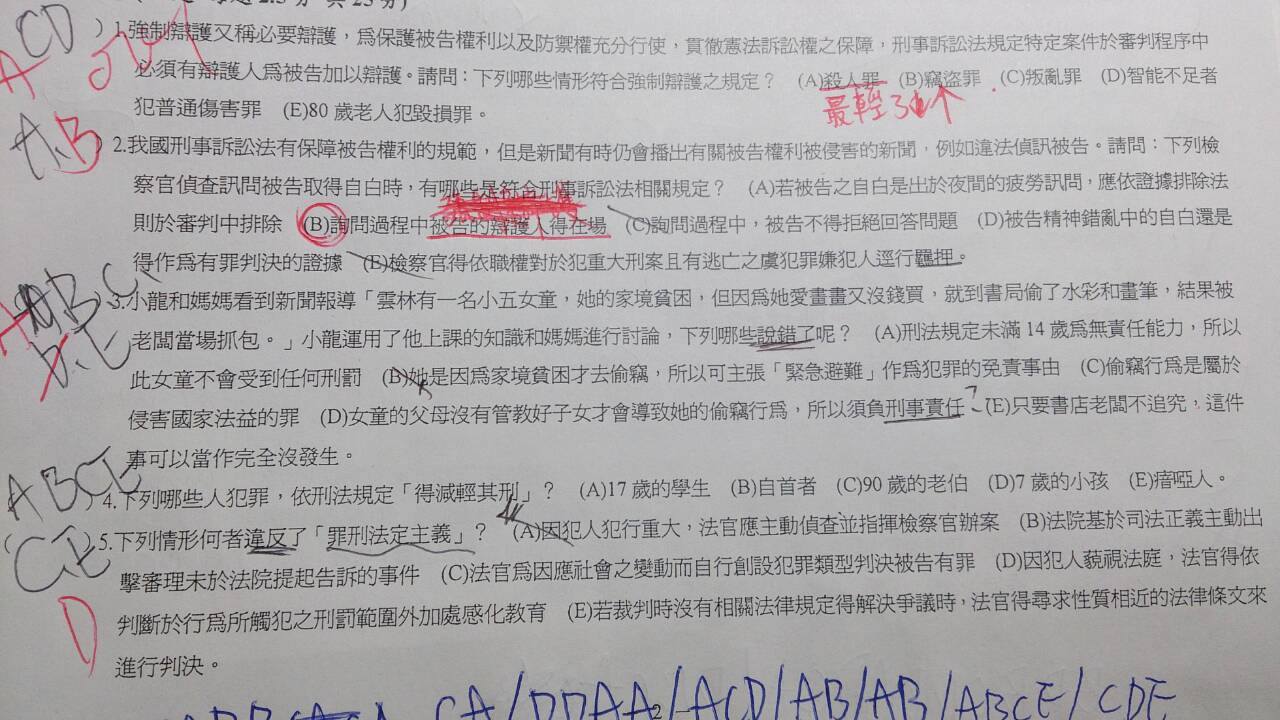 2.5分 共25分)
ACD )1.強制辯護又稱必要辯護，為保護被告權利以及防禦權充分行使，貫徹憲法訴訟權之保障，刑事訴訟法規定特定案件於審判程序中
必須有辯護人為被告加以辯護。請問：下列哪些情形符合強制辯護之規定？ (A)殺人罪 (B)竊盜罪 (C)叛亂罪 (D)智能不足者
犯普通傷害罪 (E)80歲老人犯毀損罪。
最輕
AB )2.我國刑事訴訟法有保障被告權利的規範，但是新聞有時仍會播出有關被告權利被侵害的新聞，例如違法偵訊被告。請問：下列檢
察官偵查訊問被告取得自白時，有哪些是符合刑事訴訟法相關規定？ (A)若被告之自白是出於夜間的疲勞訊問，應依證據排除法
則於審判中排除 (B)詢問過程中被告的辯護人得在場 (C)詢問過程中，被告不得拒絕回答問題 (D)被告精神錯亂中的自白還是
得作為有罪判決的證據 (E)檢察官得依職權對於犯重大刑案且有逃亡之虞犯罪嫌犯人逕行羈押。
3.小龍和媽媽看到新聞報導「雲林有一名小五女童，她的家境貧困，但因為她愛畫畫又沒錢買，就到書局偷了水彩和畫筆，結果被
老闆當場抓包。」小龍運用了他上課的知識和媽媽進行討論，下列哪些說錯了呢？ (A)刑法規定未滿14歲為無責任能力，所以
此女童不會受到任何刑罰 (B)她是因為家境貧困才去偷竊，所以可主張「緊急避難」作為犯罪的免責事由 (C)偷竊行為是屬於
侵害國家法益的罪 (D)女童的父母沒有管教好子女才會導致她的偷竊行為，所以須負刑事責任 (E)只要書店老闆不追究，這件
事可以當作完全沒發生。
ABCE )4.下列哪些人犯罪，依刑法規定「得減輕其刑」？ (A)17歲的學生 (B)自首者 (C)90歲的老伯 (D)7歲的小孩 (E)瘖啞人。
( CE )5.下列情形何者違反了「罪刑法定主義」？ (A)因犯人犯行重大，法官應主動偵查並指揮檢察官辦案 (B)法院基於司法正義主動出
擊審理未於法院提起告訴的事件 (C)法官為因應社會之變動而自行創設犯罪類型判決被告有罪 (D)因犯人藐視法庭，法官得依
D
判斷於行為所觸犯之刑罰範圍外加處感化教育 (E)若裁判時沒有相關法律規定得解決爭議時，法官得尋求性質相近的法律條文來
進行判決。
CA/DDAA/ACD/AB/AB/ABCE/CDE
2